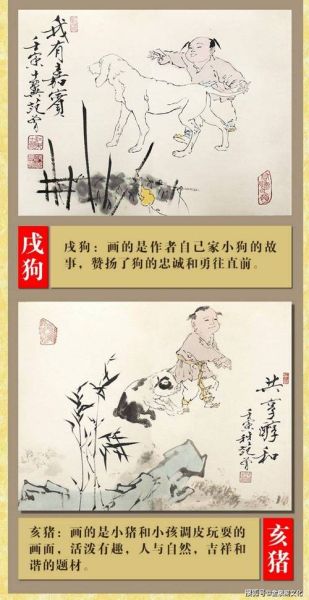 我有嘉宾
壬寅十翼范曾
戌狗
戌狗：画的是作者自己家小狗的故
事，赞扬了狗的忠诚和勇往直前。
共享酵和
壬寅
范曾
亥猪：画的是小猪和小孩调皮玩耍的
画面，活泼有趣，人与自然，吉祥和
谐的题材。
亥猪
搜狐号@金泉阁文化